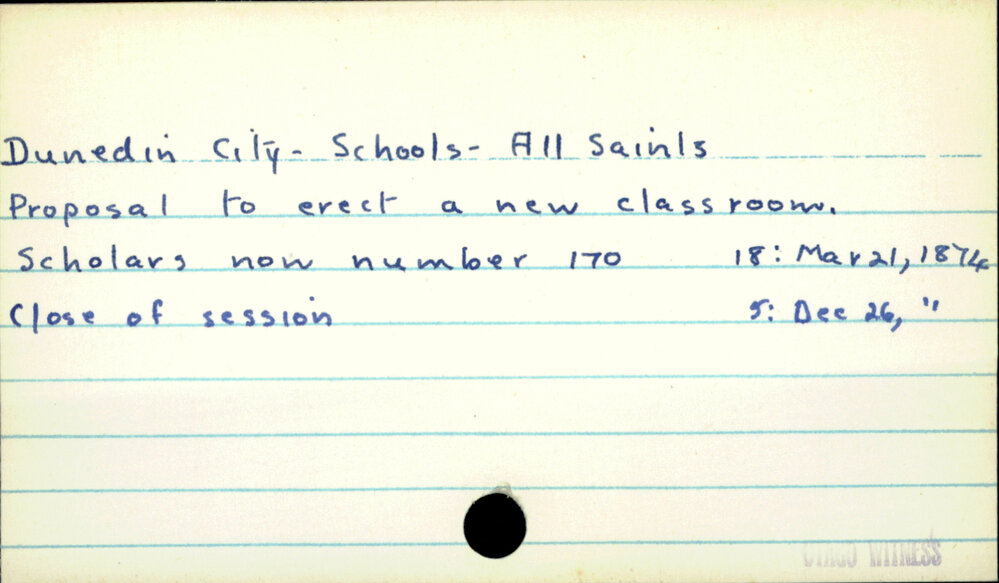 Dunedin City- Schools- All Saints
Proposal to erect a new classroom.
Scholars now number 170 18: Mar 21, 1874
Close of session 5: Dec 26, "
OTAGO WITNESS